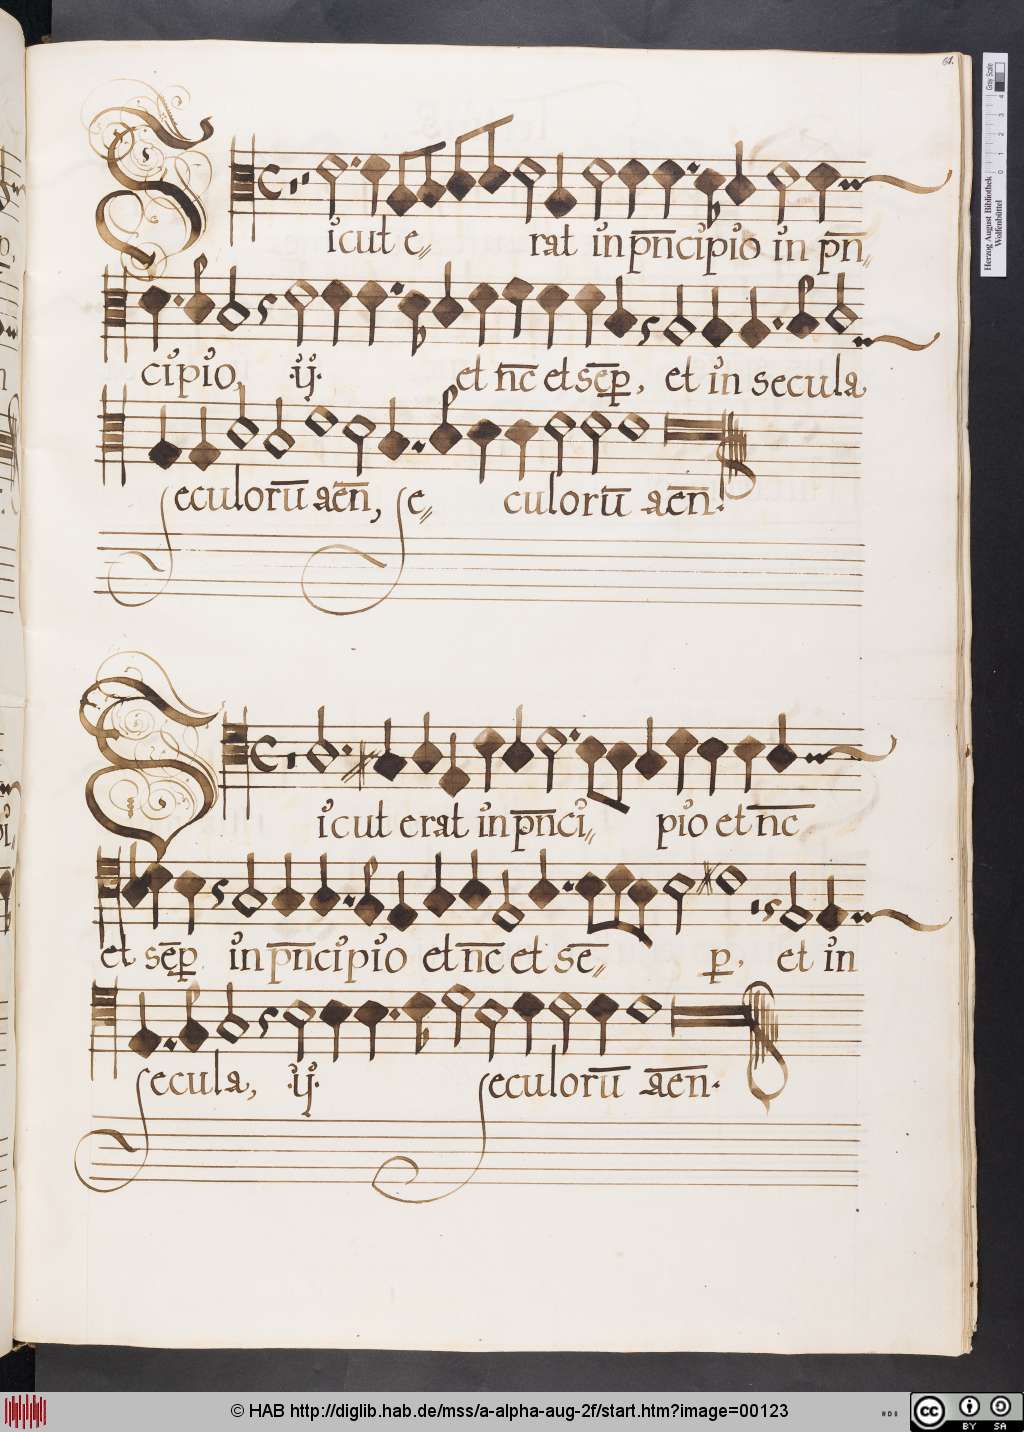 61.
Sicut e〃 rat in pn̄cipio in pn̄〃
cipio, ·ij· et nc̄ et sēp, et in secula
seculorū aēn, se〃 culorū aēn·
Sicut erat in pn̄ci〃 pio et nc̄
et sēp in pn̄cipio et nc̄ et sē〃 p, et in
secula, ·ij· seculorū aēn·
Herzog August Bibliothek
Wolfenbüttel
Gray Scale
0 1 2 3 4
© HAB http://diglib.hab.de/mss/a-alpha-aug-2f/start.htm?image=00123
cc BY SA